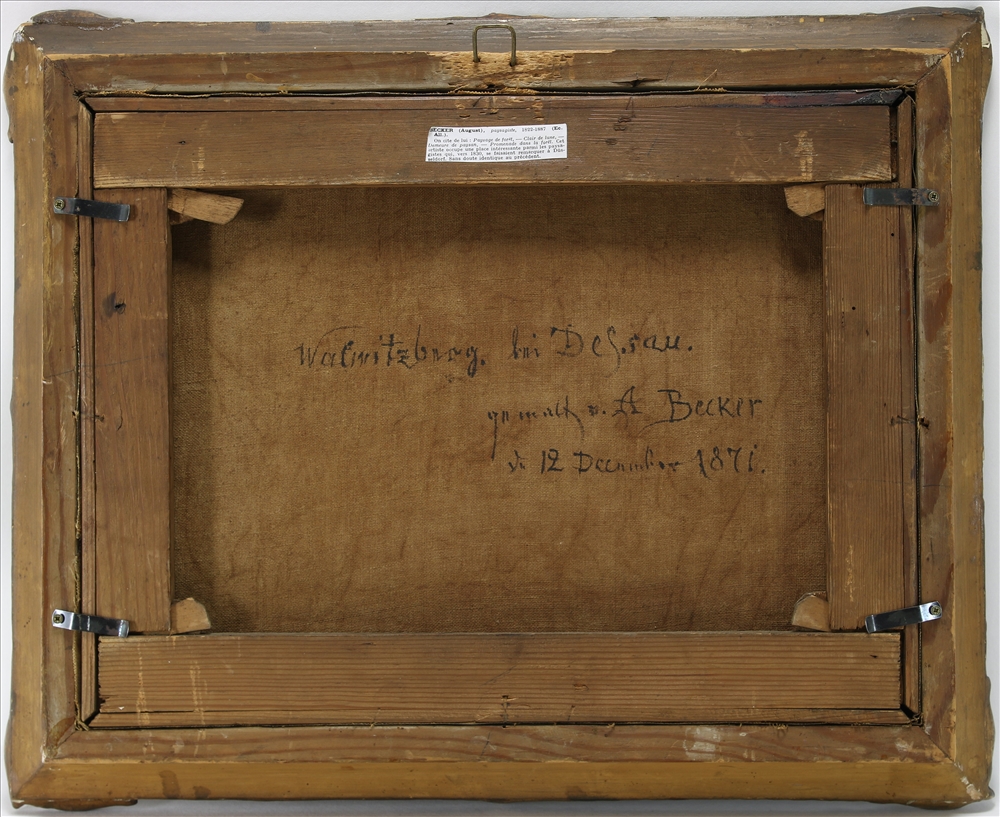 BECKER (August), paysagiste, 1822-1887 (Ec. All.).
On cite de lui : Paysage de forêt, — Clair de lune, — Demeure de paysan, — Promenade dans la forêt. Cet artiste occupe une place intéressante parmi les paysagistes qui, vers 1850, se faisaient remarquer à Düsseldorf. Sans doute identique au précédent.
bei Dessau.
gemalt v. A Becker
12 December 1871.